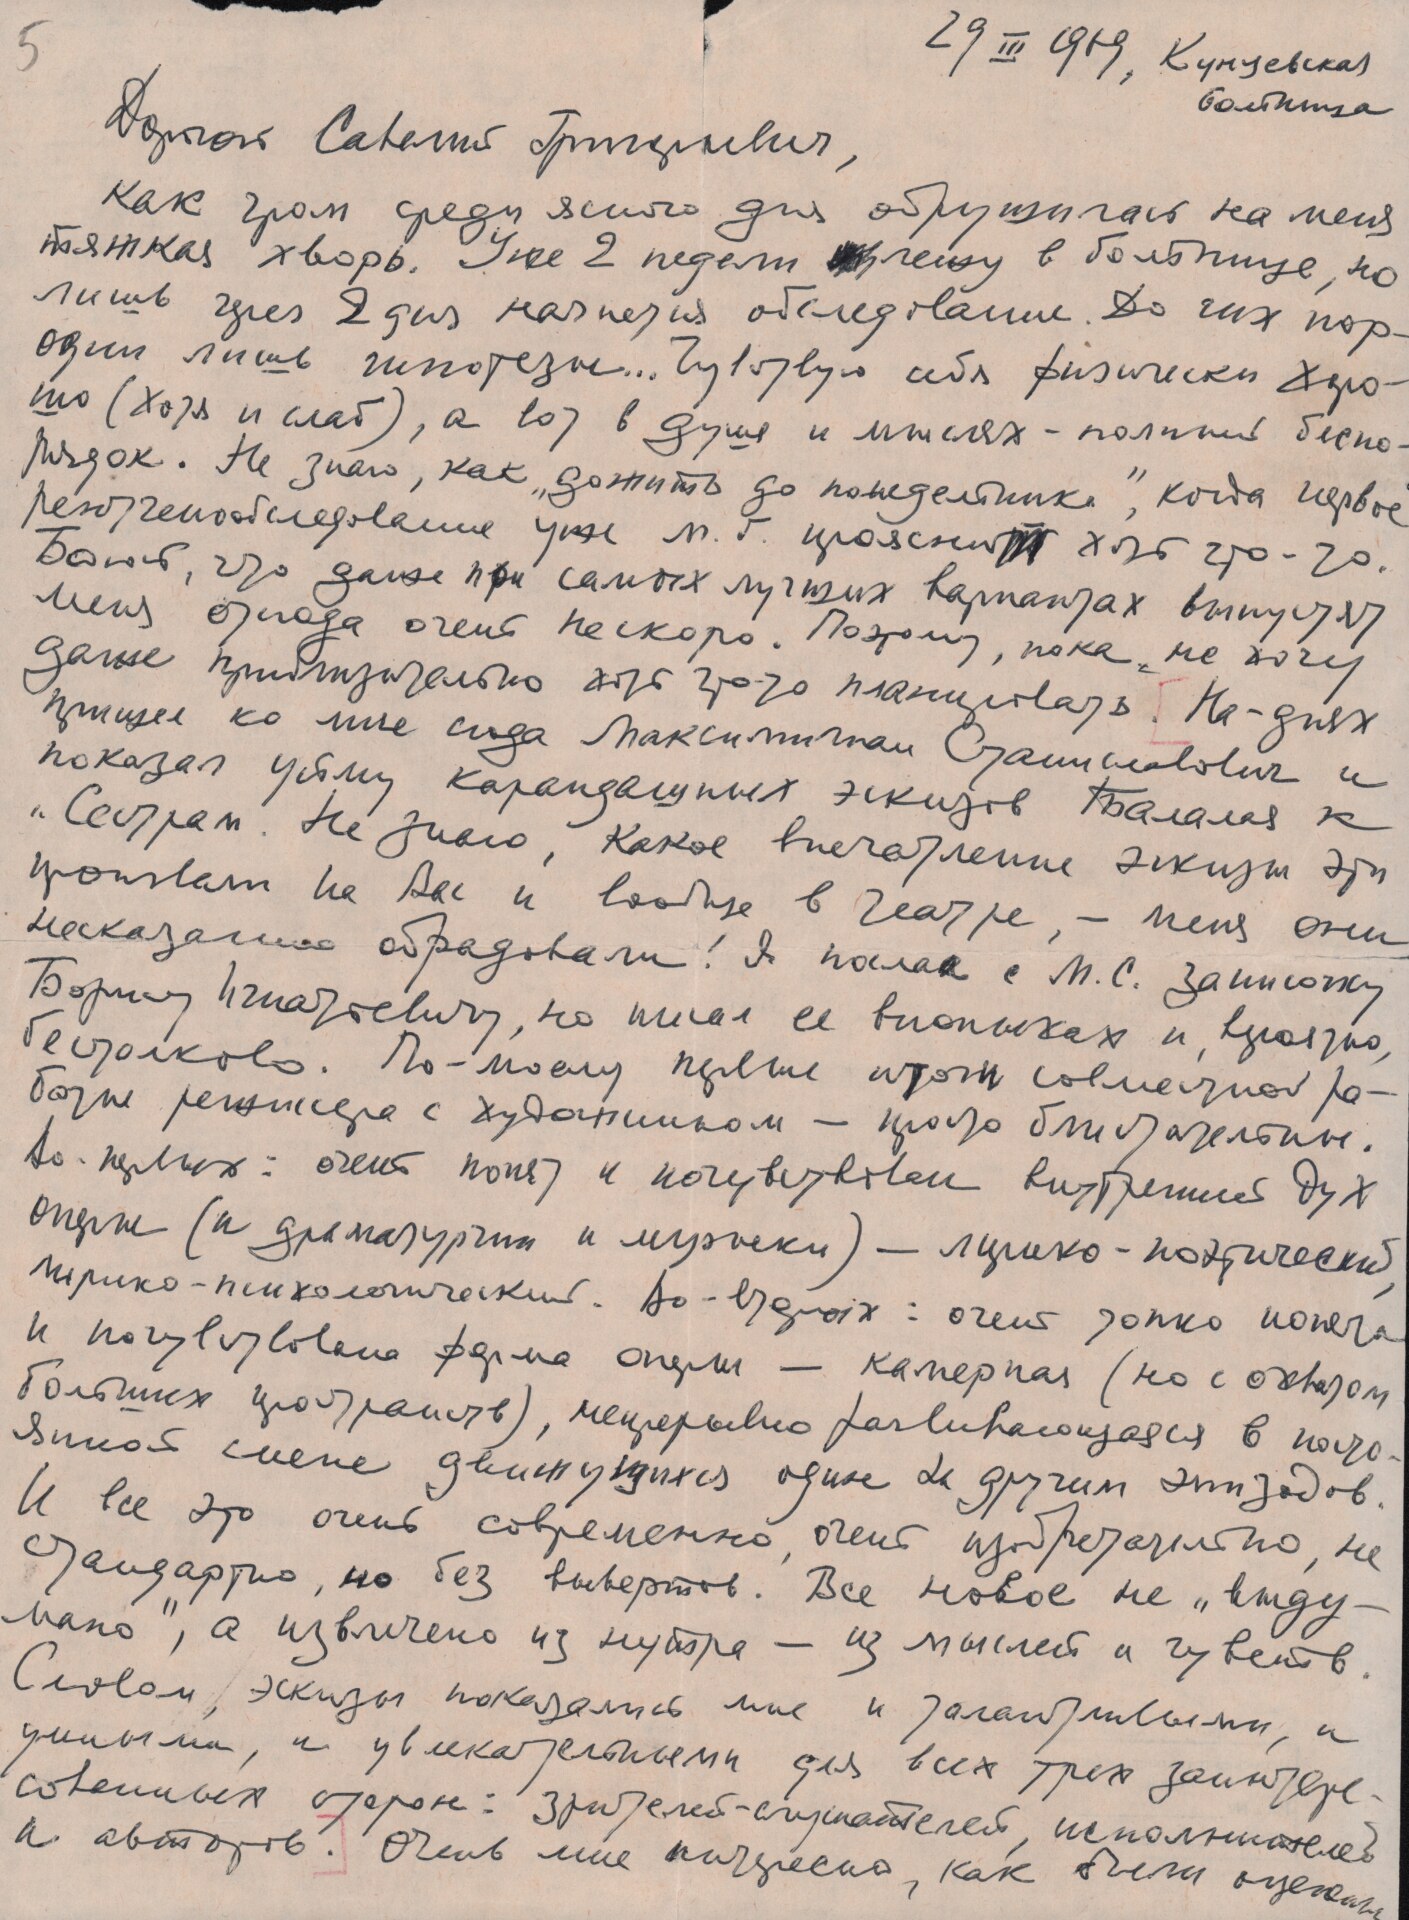 5
29 III 1969, Кунцевская
больница
Дорогой Савелий Григорьевич,
как гром среди ясного дня обрушилась на меня
тяжкая хворь. Уже 2 недели лежу в больнице, но
лишь через 2 дня начнется обследование. До сих пор –
одни лишь гипотезы... Чувствую себя физически хоро-
шо (хотя и слаб), а вот в душе и мыслях – полный беспо-
рядок. Не знаю, как „дожить до понедельника", когда первое
рентгенообследование уже м.б. прояснит хоть что-то.
Боюсь, что даже при самых лучших вариантах выпустят
меня отсюда очень нескоро. Поэтому, пока, не хочу
даже приблизительно хоть что-то планировать. На-днях
пришел ко мне сюда Максимилиан Станиславович и
показал уйму карандашных эскизов Балалая к
„Сестрам. Не знаю, какое впечатление эскизы эти
произвели на Вас и вообще в театре, – меня они
несказанно обрадовали! Я послал с М.С. записочку
Борису Игнатьевичу, но писал ее впопыхах и, вероятно,
бестолково. По-моему первые итоги совместной ра-
боты режиссера с художником – просто блистательны.
Во-первых: очень понят и почувствован внутренний дух
оперы (и драматургии и музыки) – лирико-поэтический,
лирико-психологический. Во-вторых: очень тонко понята
и почувствована форма оперы – камерная (но с охватом
больших пространств), непрерывно развивающаяся в посто-
янной смене движущихся один за другим эпизодов.
И все это очень современно, очень изобретательно, не
стандартно, но без вывертов. Все новое не „выду-
мано", а извлечено из нутра – из мыслей и чувств.
Словом, эскизы показались мне и талантливыми, и
умными, и увлекательными для всех трех заинтере-
сованных сторон: зрителей-слушателей, исполнителей
и авторов. Очень мне интересно, как были оценены